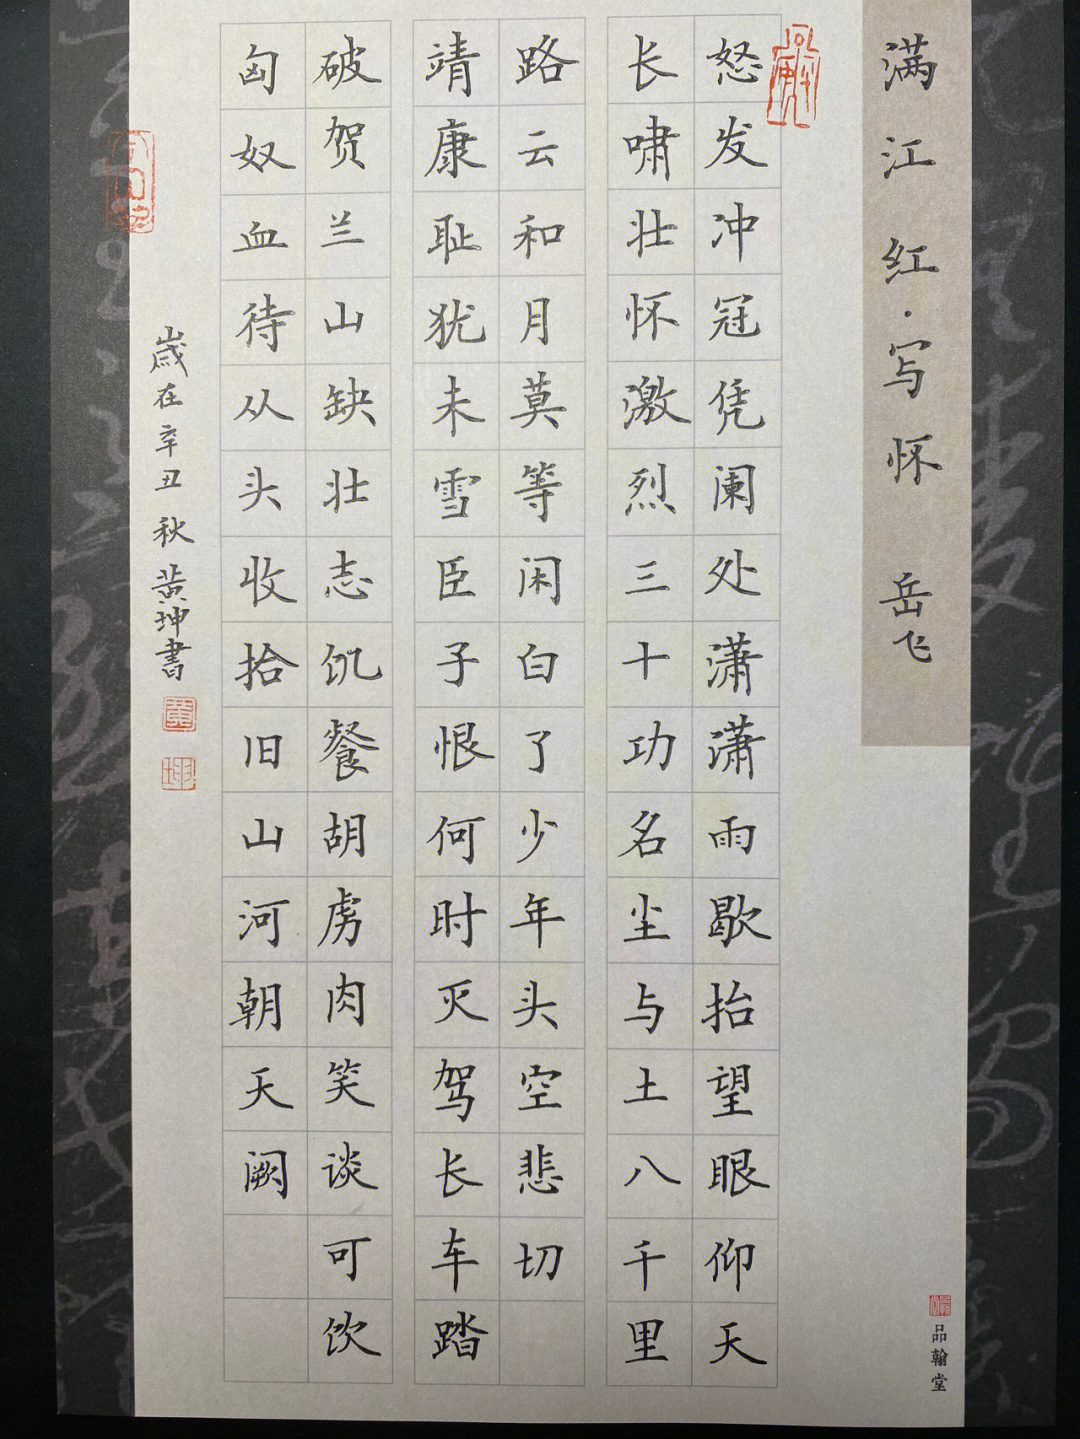 满江红·写怀 岳飞
怒发冲冠凭阑处潇潇雨歇抬望眼仰天
长啸壮怀激烈三十功名尘与土八千里
路云和月莫等闲白了少年头空悲切
靖康耻犹未雪臣子恨何时灭驾长车踏
破贺兰山缺壮志饥餐胡虏肉笑谈可饮
匈奴血待从头收拾旧山河朝天阙
歲在辛丑秋黄坤書
黄
坤
品翰堂